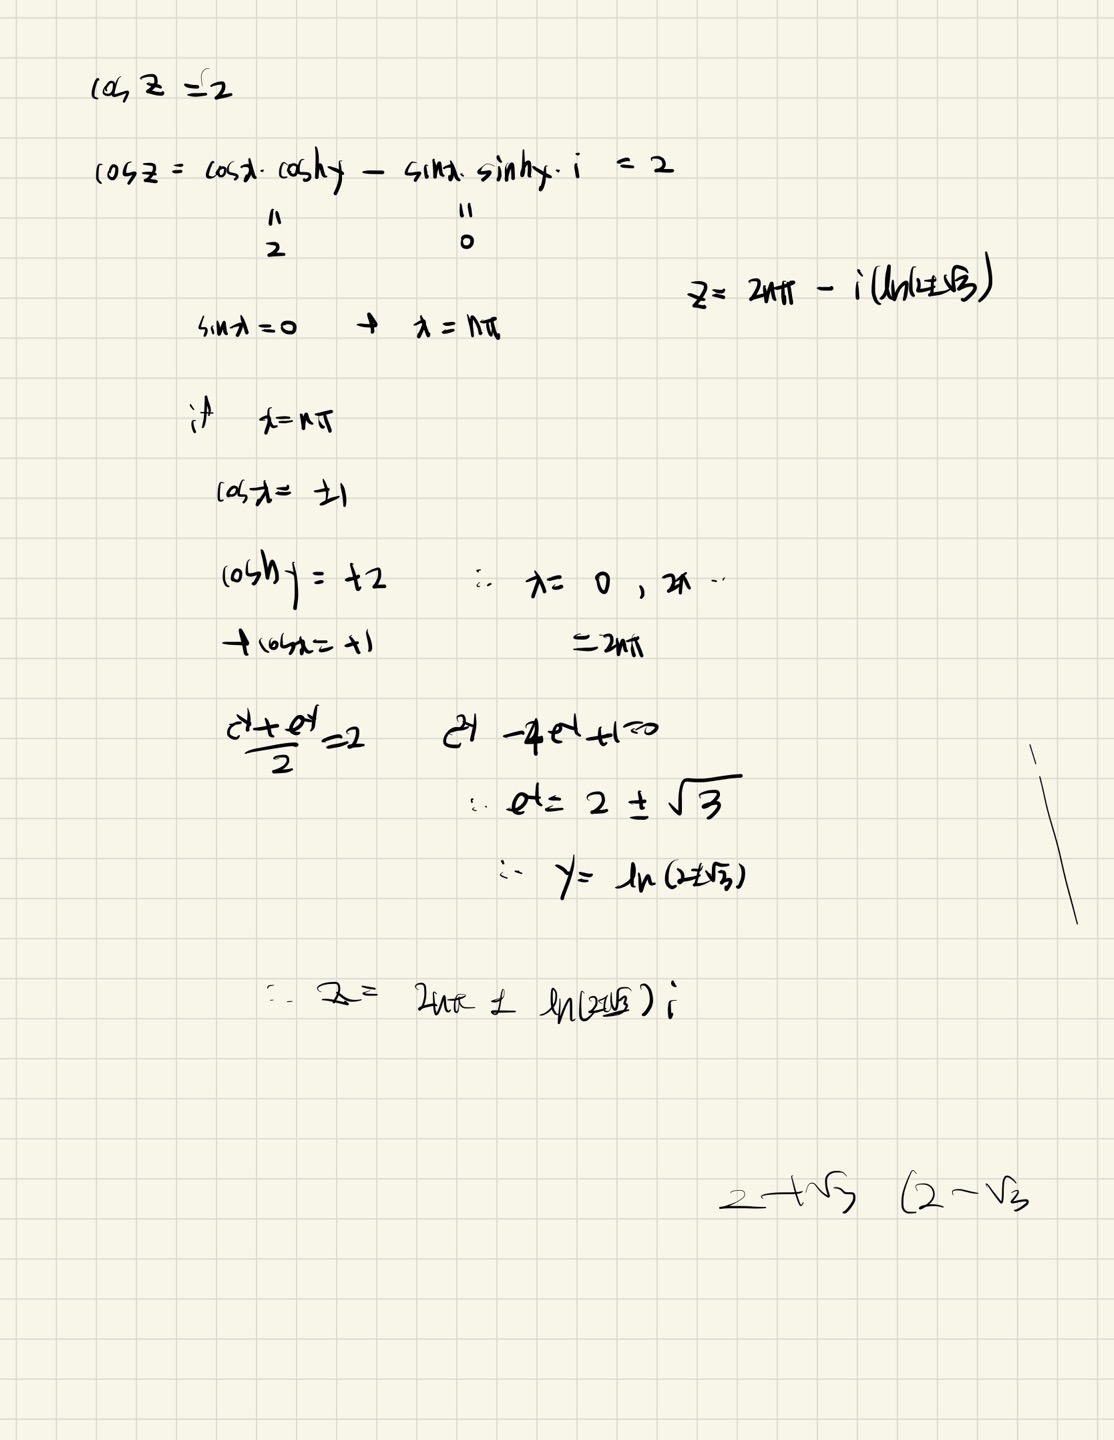 cos z = 2
cos z = cosx · coshy − sinx · sinhy · i = 2
॥ ॥
2 0
z = 2nπ − i(ln(2±√3))
sinx = 0 → x = nπ
if x = nπ
cosx = ±1
coshy = +2 ∴ x = 0, 2π ··
→ cosx = +1 = 2nπ
(e^y + e^-y)/2 = 2 e^2y − 4e^y + 1 = 0
∴ e^y = 2 ± √3
∴ y = ln(2±√3)
∴ z = 2nπ ± ln(2±√3) i
2+√3 (2−√3